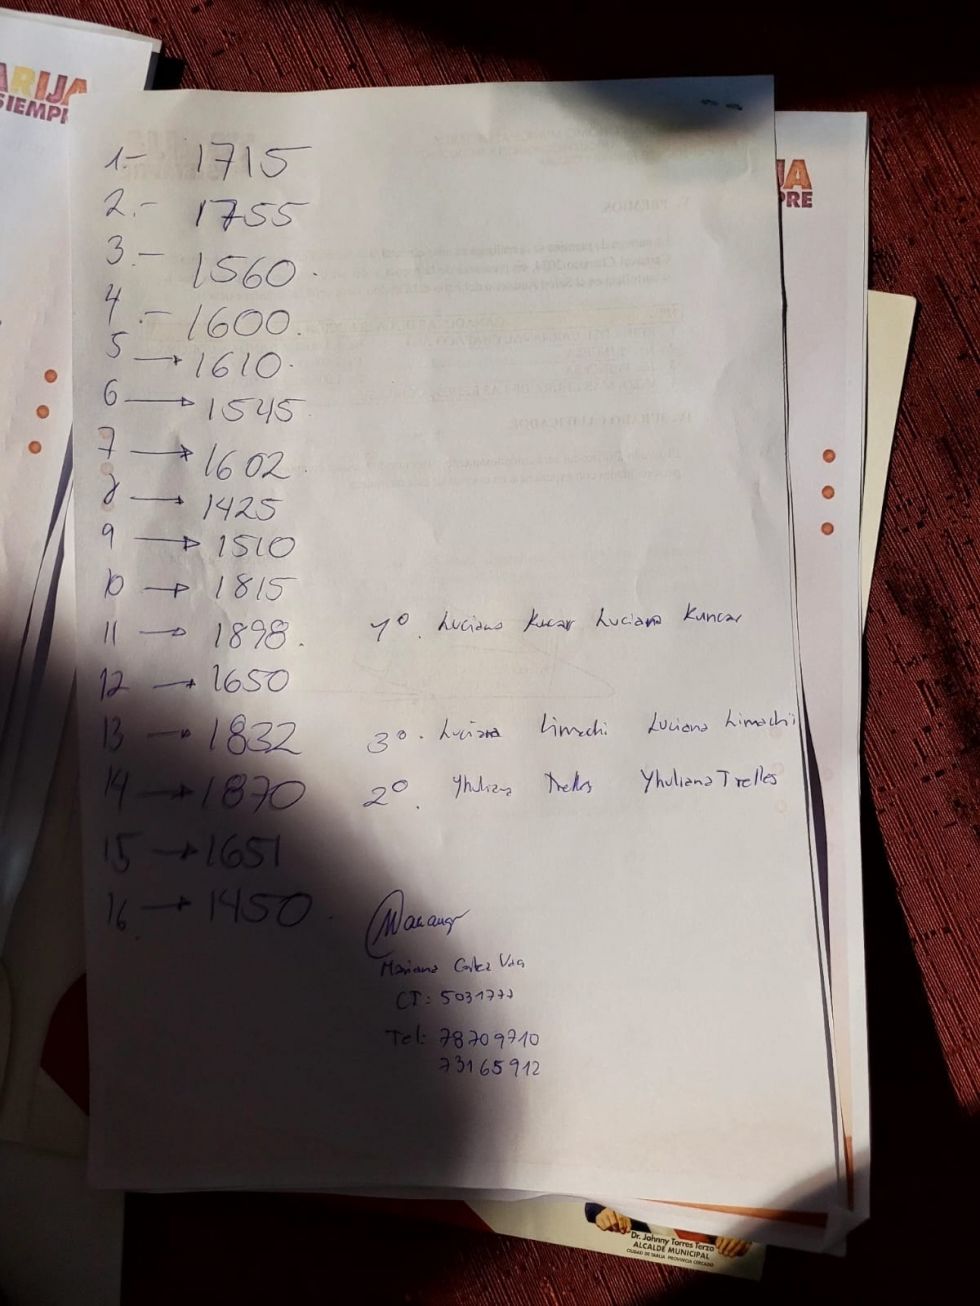 ARIJA
SIEMPRE
JA
PRE
1.- 1715
2.- 1755
3.- 1560.
4.- 1600.
5 → 1610.
6 → 1545
7 → 1602
8 → 1425
9 → 1510
10 → 1815
11 → 1898. 1º. Luciana Kuncar Luciana Kuncar
12 → 1650
13 → 1832 3º. Luciana Limachi Luciana Limachi
14 → 1870 2º. Yhuliana Trelles Yhuliana Trelles
15 → 1651
16 → 1450.
Mariana
CI: 5031777
Tel: 78709710
73165912
Dr. Johnny Torres Terzo
ALCALDE MUNICIPAL
CIUDAD DE TARIJA PROVINCIA CERCADO